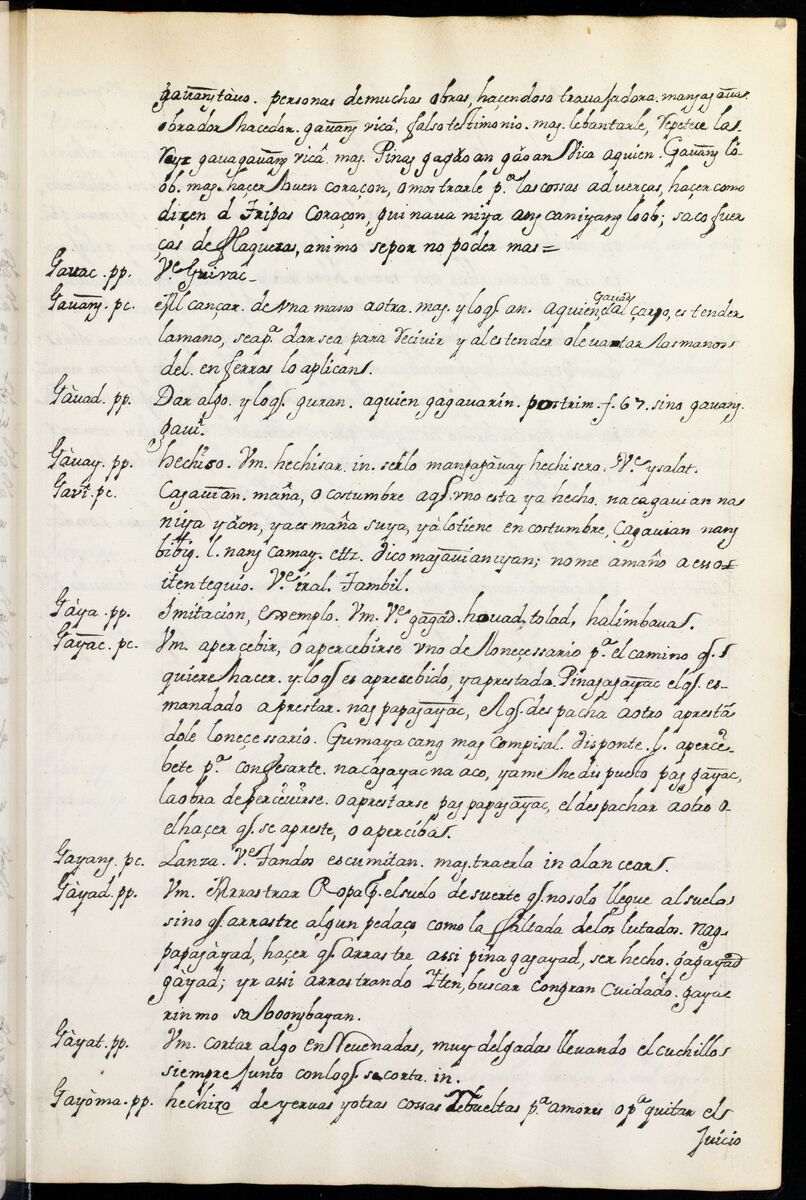 gauang tàuo. personas de muchas obras, haçendosa trauajadora. mangagauas.
obrador hacedor. gauang vicã, falso testimonio. mag. lebantarle, vepetece las.
gauagauang vicã. mag. Pinag gagãoan gãoan vica aquien. Gauang lo
ob. mag. haçer buen coraçon, o mostrarle pª. las cossas aduerças, haçer como
dizen d Tripas Coraçon, guinaua niya ang caniyang loob; saco fuer
ças de flaquezas, animo se por no poder mas =
Gauac. pp. Vᵉ. Guivac ~
Gauang. pc. Al cançar. de vna mano a otra. mag. y loqᷤ an. aquien, es tender
gauang
la mano, sea pª. dar sea para recivir y al estender o levantar las manos
del. en ferras lo aplican.
Gàuad. pp. Dar algo. y loqᷤ. guran. aquien gagauarin. postrim. f. 67. sino gauang.
gaui.
Gàuay. pp. hechiso. Vm. hechisar. in. serlo mangagàuay hechisero. Vᵉ ysalat.
Gavi. pc. Cagauian. maña, o costumbre a qᷤ vno esta ya hecho. nacagauian na
niya yãon, ya es maña suya, yà lo tiene en costumbre, Cagauian nang
bibig. l. nang camay. ettz. dico magauian iyan; no me amaño a esso =
iten tequio. Vᵉ. iral. Tambil.
Gàya. pp. Imitacion, exemplo. Vm. Vᵉ. gagad. houad, tolad, halimbaua.
Gayac. pc. Vm. apercebir, o apercebirse vno de lo neçessario pª. el camino qᷤ. s
quiere hacer. y. loqᷤ es apresebido, y aprestado. Pinagagayac el qᷤ. es
mandado aprestar. nag papagayac, el qᷤ. despacha a otro aprestã
dole lo neçessario. Gumayac ang mag compisal. disponte. l. aperce
bete pª. confesarte. nacagayac na aco, ya me he dispuesto pag gayac,
la obra de perceuirse. o aprestarse pag papagayac, el despachar a otro o
el haçer qᷤ. se apreste, o aperciba.
Gayang. pc. Lanza. Vᵉ Tandos escumitan. mag. traerla in alancear.
Gàyad. pp. Vm. Arrastrar Ropa pᷤ. el suelo de suerte qᷤ. no solo llegue al suelo
sino qᷤ. arrastre algun pedaço como la faltada de los lutados. nag
papagàyad, haçer qᷤ arrastre assi pina gagayad, ser hecho. gagayad
gàyad; yr assi arrastrando Iten, buscar con gran cuidado. gaya
rin mo sa boong bayan.
Gàyat. pp. Vm. cortar algo en Reuenadas, muy delgadas lleuando el cuchillo
siempre junto con loqᷤ se corta. in.
Gayòma. pp. hechizo de yeruas y otras cossas Rebueltas pª. amores o pª. quitar el
Juicio